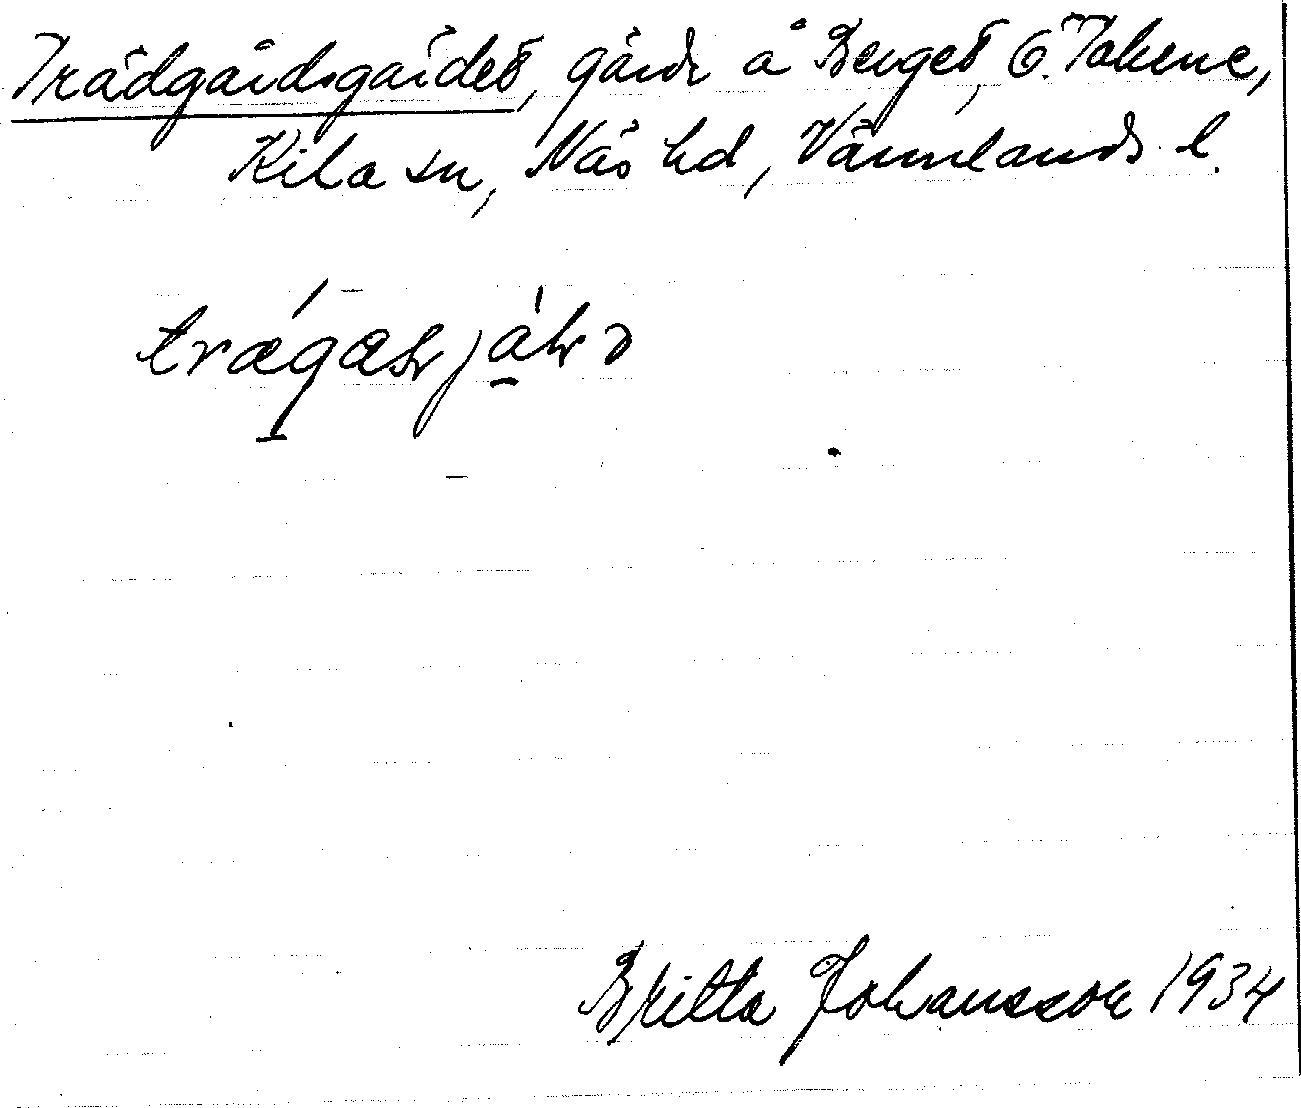 Trädgårdsgärdet, gärde å Berget, Ö. Takene,
Kila sn, Näs hd, Värmlands l.
Britta Johansson 1934